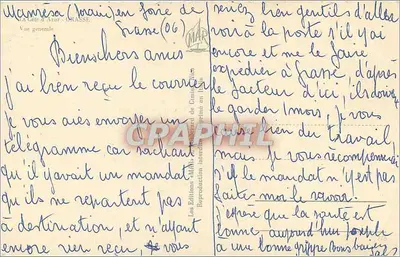 Mannera (Main) en foire de
Grasse (06)
LA CÔTE D'AZUR - GRASSE
Vue générale
Bien chers amis
j'ai bien reçu le courrier
je vous avais envoyer un
télégramme car sachant
qu'il y avait un mandat
qu'ils ne repartent pas
à destination, et n'ayant
encore rien reçu, vous
Les Editions
Reproduction interdite
CPAPHIL
seriez bien gentils d'aller
voir à la poste s'il y ai
encore et me le faire
expédier à Grasse, d'après
le facteur d'ici, ils doivent
le garder 1 mois, je vous
cause bien du travail
mais je vous récompenserai
si le mandat n'y est pas
faite-moi le savoir.
J'espère que la santé est
bonne, aujourd'hui Joseph
a une bonne grippe Bons baisers